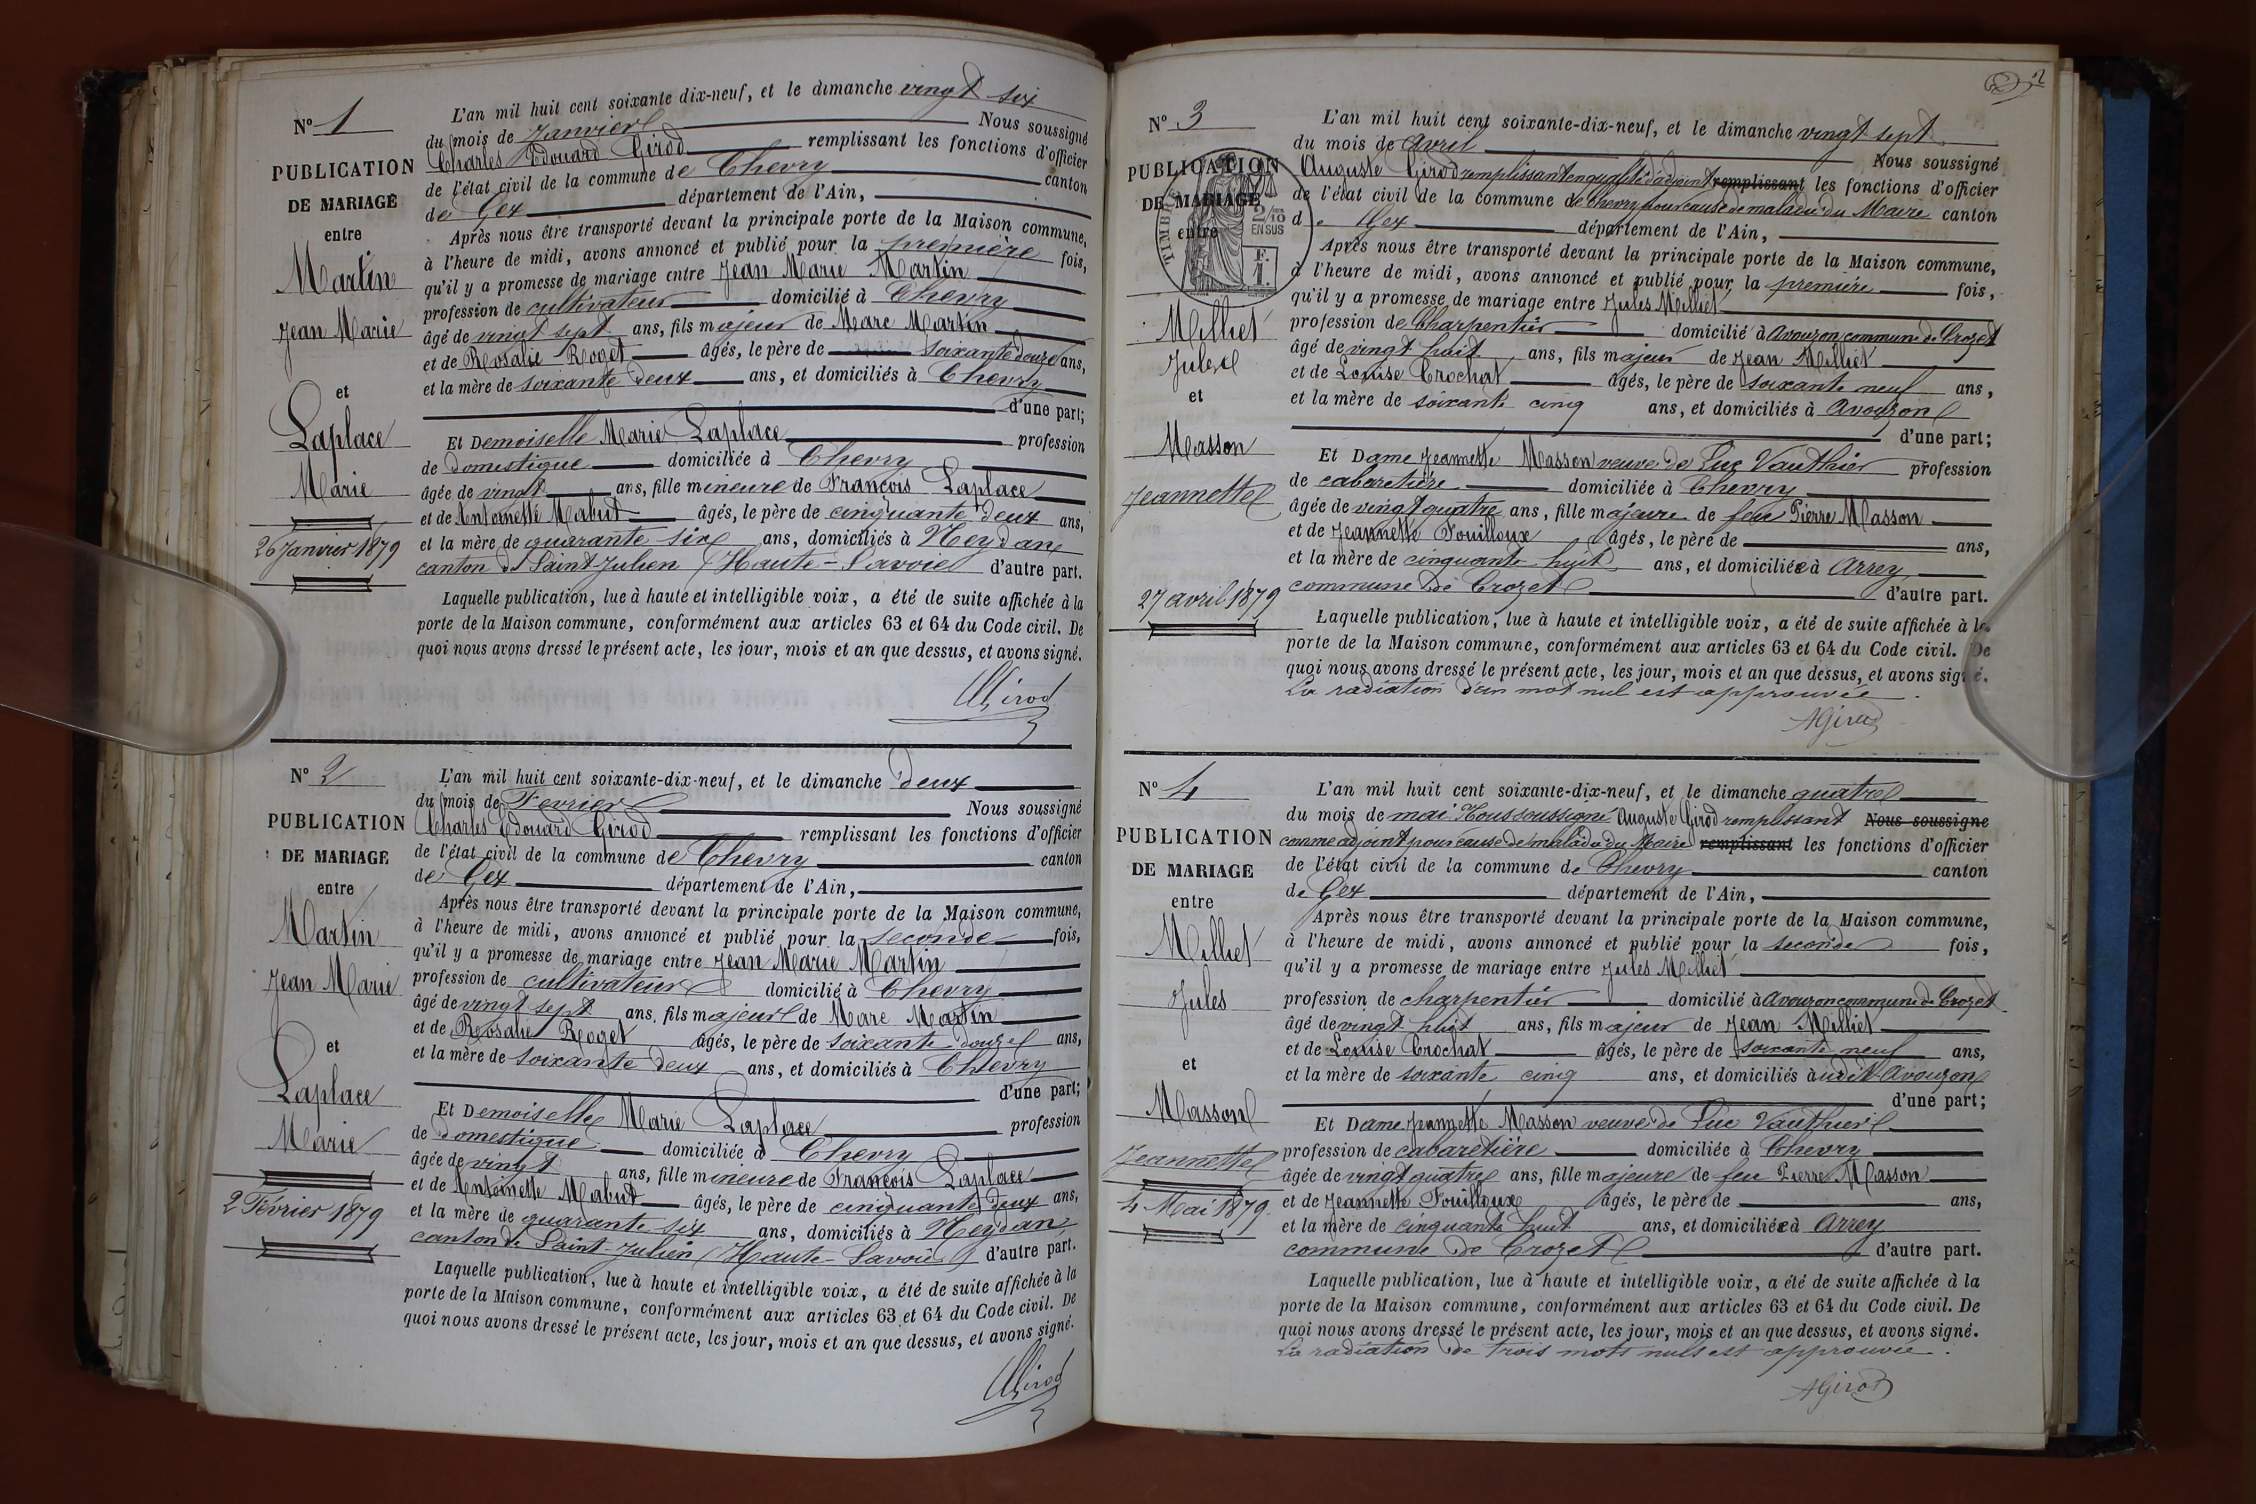 N° 1
PUBLICATION
DE MARIAGE
entre
Martin
Jean Marie
et
Laplace
Marie
26 Janvier 1879
L'an mil huit cent soixante dix-neuf, et le dimanche vingt six
du mois de Janvier Nous soussigné
Charles Edouard Girod remplissant les fonctions d'officier
de l'état civil de la commune de Chevry canton
de Gex département de l'Ain,
Après nous être transporté devant la principale porte de la Maison commune,
à l'heure de midi, avons annoncé et publié pour la première fois,
qu'il y a promesse de mariage entre Jean Marie Martin
profession de cultivateur domicilié à Chevry
âgé de vingt sept ans, fils majeur de Marc Martin
et de Rosalie Roget âgés, le père de soixante douze ans,
et la mère de soixante deux ans, et domiciliés à Chevry
d'une part;
Et Demoiselle Marie Laplace profession
de domestique domiciliée à Chevry
âgée de vingt ans, fille mineure de François Laplace
et de Antoinette Mabut âgés, le père de cinquante deux ans,
et la mère de quarante six ans, domiciliés à Neydan
canton de Saint-Julien (Haute-Savoie) d'autre part.
Laquelle publication, lue à haute et intelligible voix, a été de suite affichée à la
porte de la Maison commune, conformément aux articles 63 et 64 du Code civil. De
quoi nous avons dressé le présent acte, les jour, mois et an que dessus, et avons signé.
Girod
N° 2
PUBLICATION
DE MARIAGE
entre
Martin
Jean Marie
et
Laplace
Marie
2 Février 1879
L'an mil huit cent soixante-dix-neuf, et le dimanche deux
du mois de Fevrier Nous soussigné
Charles Edouard Girod remplissant les fonctions d'officier
de l'état civil de la commune de Chevry canton
de Gex département de l'Ain,
Après nous être transporté devant la principale porte de la Maison commune,
à l'heure de midi, avons annoncé et publié pour la seconde fois,
qu'il y a promesse de mariage entre Jean Marie Martin
profession de cultivateur domicilié à Chevry
âgé de vingt sept ans, fils majeur de Marc Martin
et de Rosalie Roget âgés, le père de soixante douze ans,
et la mère de soixante deux ans, et domiciliés à Chevry
d'une part;
Et Demoiselle Marie Laplace profession
de domestique domiciliée à Chevry
âgée de vingt ans, fille mineure de François Laplace
et de Antoinette Mabut âgés, le père de cinquante deux ans,
et la mère de quarante six ans, domiciliés à Neydan
canton de Saint-Julien (Haute-Savoie) d'autre part.
Laquelle publication, lue à haute et intelligible voix, a été de suite affichée à la
porte de la Maison commune, conformément aux articles 63 et 64 du Code civil. De
quoi nous avons dressé le présent acte, les jour, mois et an que dessus, et avons signé.
Girod
2
N° 3
PUBLICATION
DE MARIAGE
entre
TIMBRE
2/10
EN SUS
F.
1.
Milliet
Jules
et
Masson
Jeannette
27 avril 1879
L'an mil huit cent soixante-dix-neuf, et le dimanche vingt sept
du mois de Avril Nous soussigné
Auguste Girod remplissant en qualité d'adjoint remplissant les fonctions d'officier
de l'état civil de la commune de Chevry pour cause de maladie du Maire canton
de Gex département de l'Ain,
Après nous être transporté devant la principale porte de la Maison commune,
à l'heure de midi, avons annoncé et publié pour la première fois,
qu'il y a promesse de mariage entre Jules Milliet
profession de Charpentier domicilié à Avouzon commune de Crozet
âgé de vingt huit ans, fils majeur de Jean Milliet
et de Louise Crochat âgés, le père de soixante neuf ans,
et la mère de soixante cinq ans, et domiciliés à Avouzon
d'une part;
Et Dame Jeannette Masson veuve de Luc Vauthier profession
de cabaretière domiciliée à Chevry
âgée de vingt quatre ans, fille majeure de feu Pierre Masson
et de Jeannette Fouilloux âgés, le père de ans,
et la mère de cinquante huit ans, et domiciliée à Arrey
commune de Crozet d'autre part.
Laquelle publication, lue à haute et intelligible voix, a été de suite affichée à la
porte de la Maison commune, conformément aux articles 63 et 64 du Code civil. De
quoi nous avons dressé le présent acte, les jour, mois et an que dessus, et avons signé.
La radiation d'un mot nul est approuvée.
AGirod
N° 4
PUBLICATION
DE MARIAGE
entre
Milliet
Jules
et
Masson
Jeannette
4 Mai 1879.
L'an mil huit cent soixante-dix-neuf, et le dimanche quatre
du mois de mai. Nous soussigné Auguste Girod remplissant Nous soussigné
comme adjoint pour cause de maladie du Maire remplissant les fonctions d'officier
de l'état civil de la commune de Chevry canton
de Gex département de l'Ain,
Après nous être transporté devant la principale porte de la Maison commune,
à l'heure de midi, avons annoncé et publié pour la seconde fois,
qu'il y a promesse de mariage entre Jules Milliet
profession de charpentier domicilié à Avouzon commune de Crozet
âgé de vingt huit ans, fils majeur de Jean Milliet
et de Louise Crochat âgés, le père de soixante neuf ans,
et la mère de soixante cinq ans, et domiciliés à udit Avouzon
d'une part;
Et Dame Jeannette Masson veuve de Luc Vauthier
profession de cabaretière domiciliée à Chevry
âgée de vingt quatre ans, fille majeure de feu Pierre Masson
et de Jeannette Fouilloux âgés, le père de ans,
et la mère de cinquante huit ans, et domiciliée à Arrey
commune de Crozet d'autre part.
Laquelle publication, lue à haute et intelligible voix, a été de suite affichée à la
porte de la Maison commune, conformément aux articles 63 et 64 du Code civil. De
quoi nous avons dressé le présent acte, les jour, mois et an que dessus, et avons signé.
La radiation de trois mots nuls est approuvée.
AGirod